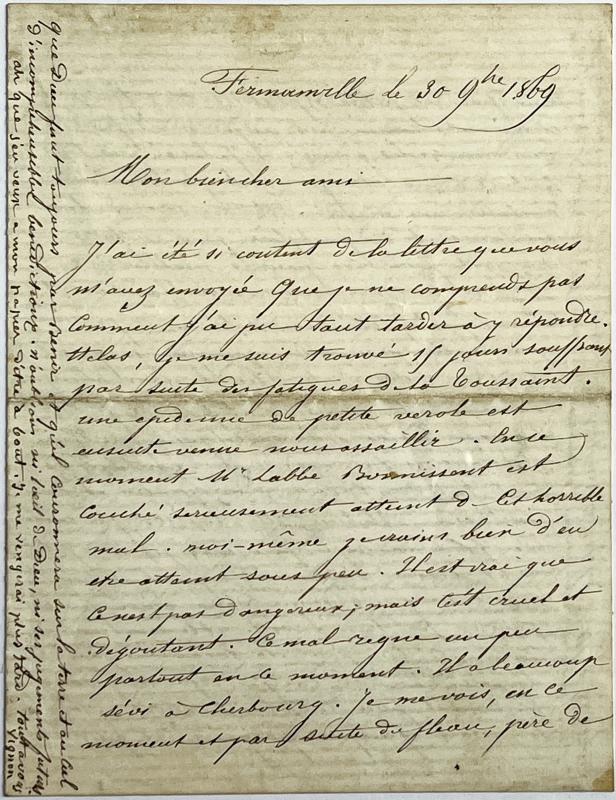 Fermanville le 30 9bre 1869
Mon bien cher ami
J'ai été si content de la lettre que vous
m'avez envoyée que je ne comprends pas
comment j'ai pu tant tarder à y répondre.
Helas, je me suis trouvé 15 jours souffrant
par suite des fatigues de la Toussaint.
une epidemie de petite verole est
ensuite venue nous assaillir. En ce
moment Mr Labbe Bonnissent est
couché serieusement atteint de cet horrible
mal. moi-même je crains bien d'en
etre atteint sous peu. Il est vrai que
ce n'est pas dangereux; mais c'est cruel et
dégoutant. Ce mal regne un peu
partout en ce moment. Il a beaucoup
sévi à Cherbourg. Je me vois, en ce
moment et par suite du fleau, père de
que Dieu finit toujours par Benir et qu'il couronnera sur la terre et au ciel
d'incomprehensibles benedictions. n'oublions ni l'oeil de Dieu, ni ses jugements futurs
ah que j'en veux a mon papier d'etre à bout. je me vengerai plus tard. Tout a vous
Vignon